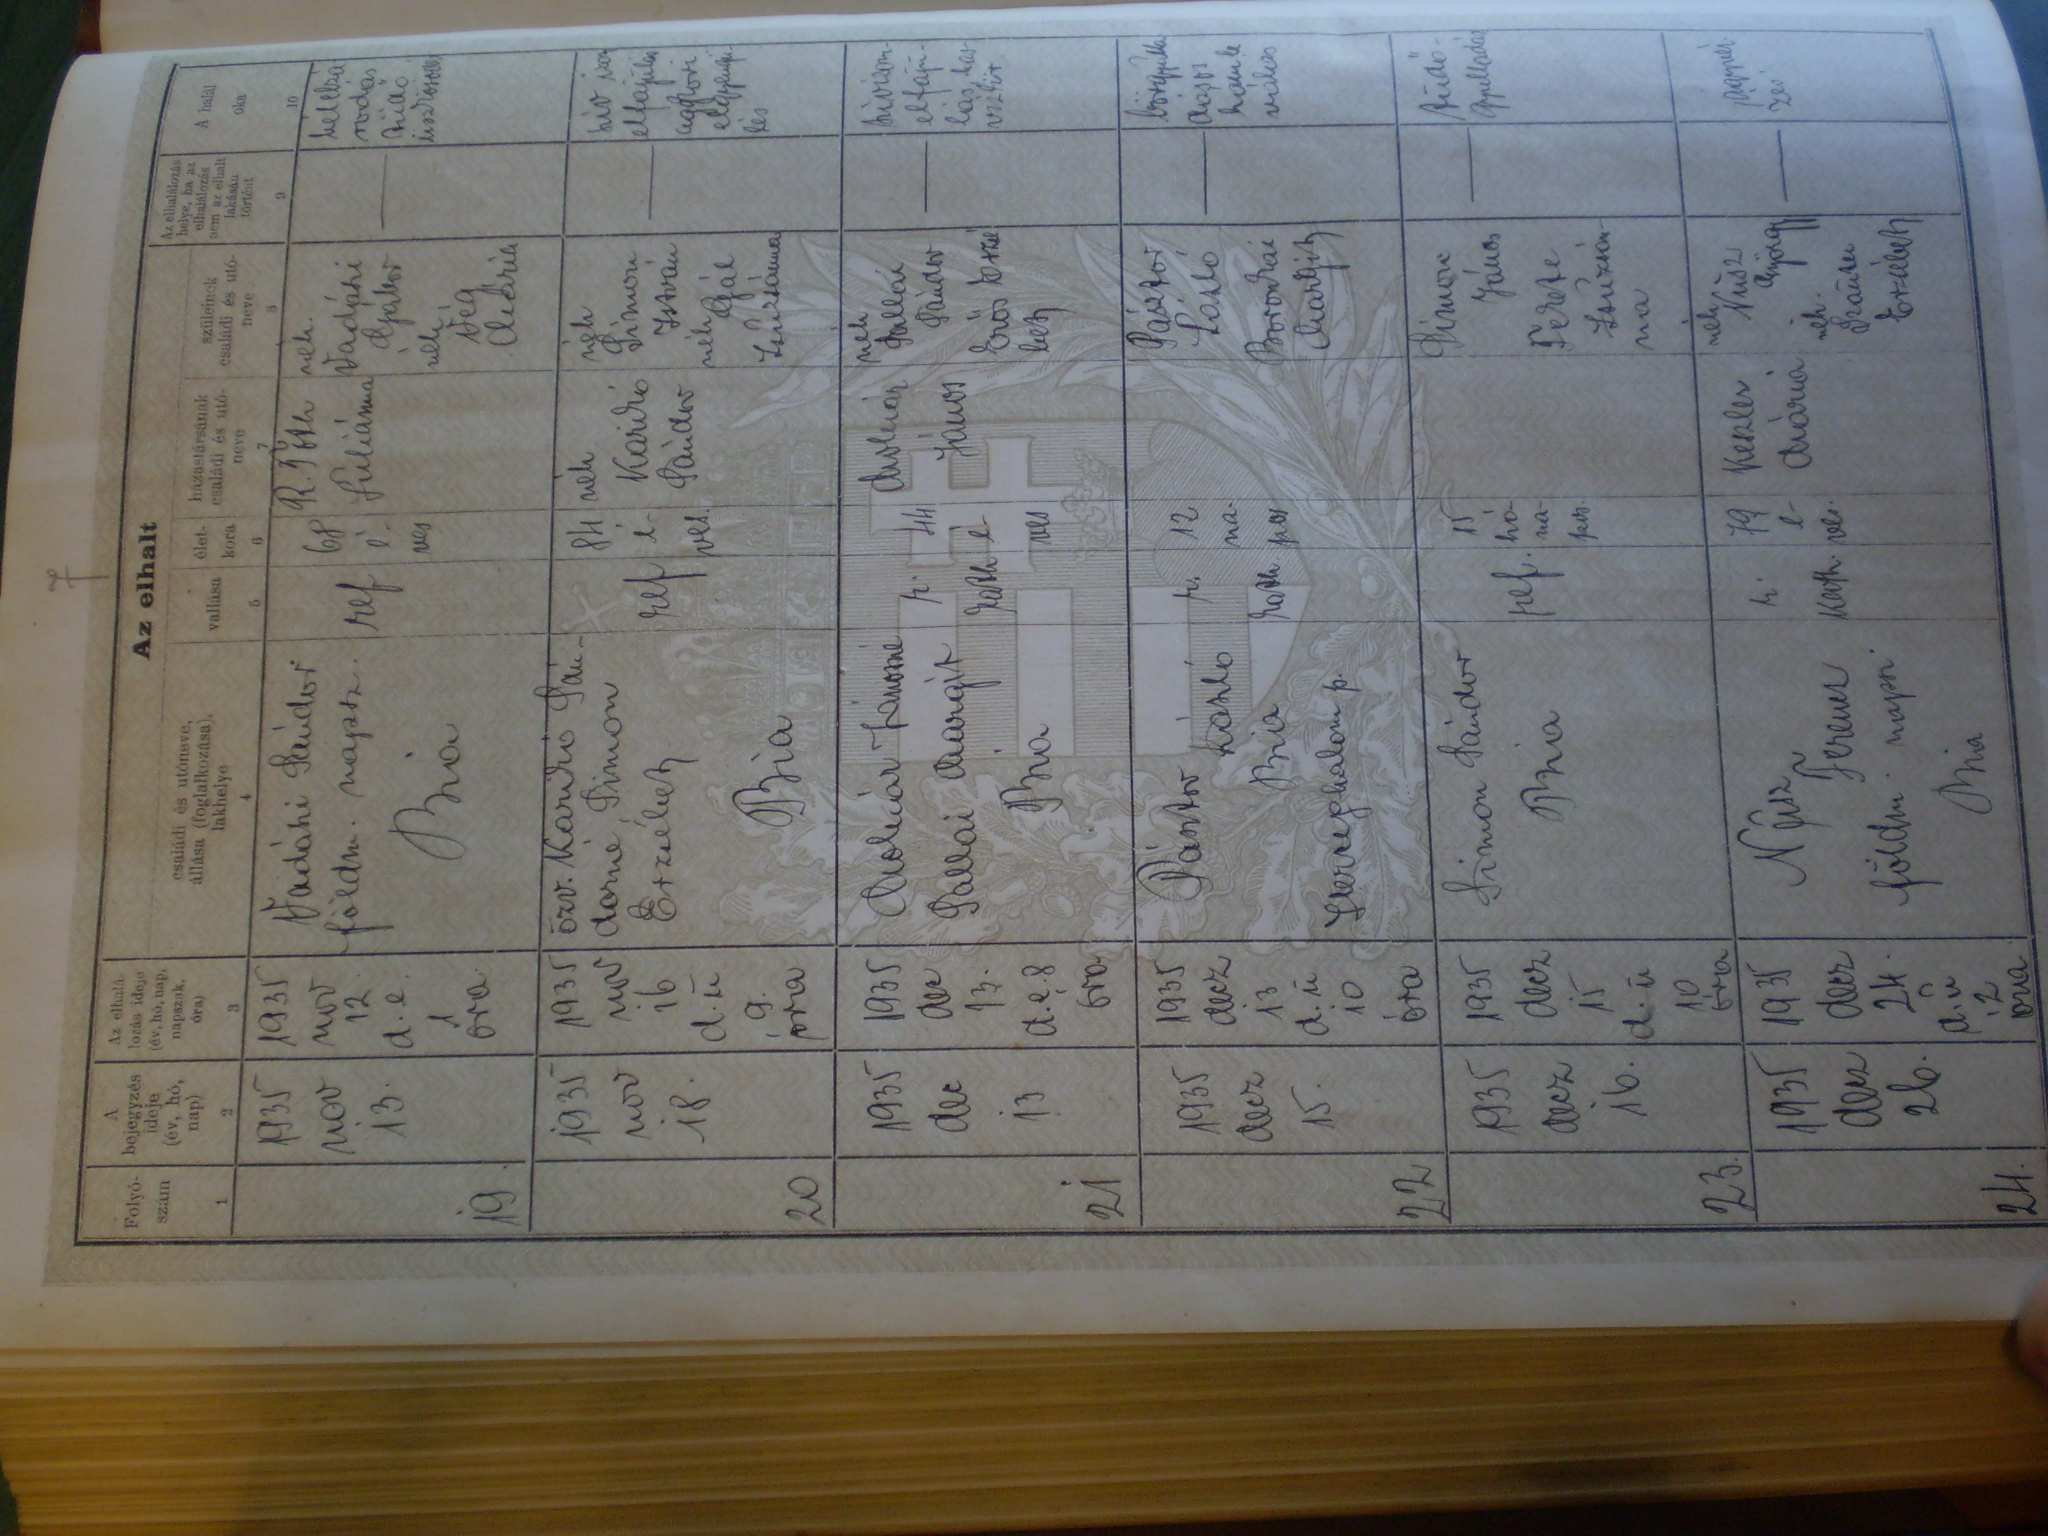 Az elhalt
Folyó-
szám
A
bejegyzés
ideje
(év, hó,
nap)
Az elhalá-
lozás ideje
(év, hó, nap,
napszak,
óra)
családi és utóneve,
állása (foglalkozása),
lakhelye
vallása
élet-
kora
házastársának
családi és utó-
neve
szüleinek
családi és utó-
neve
Az elhalálozás
helye, ha az
elhalálozás
nem az elhalt
lakásán
történt
A halál
oka
1
2
3
4
5
6
7
8
9
10
19.
1935
nov
13.
1935
nov
12.
d. e.
1
óra
Sándor
földm. napsz.
Bia
ref
68
é-
ves
R. Tóth
Juliánna
néh.
néh
Vég
tüdő
20
1935
nov
18.
1935
nov
16
d. ü
9.
óra
özv. Karikó Sán-
dorné Simon
Erzsébet
Bia
ref
84
é-
ves.
néh
Karikó
Sándor
néh
Simon
István
néh
Gál
Zsuzsánna
szív izom
elfajulás
aggkori
elgyengü
lés
21
1935
dec
13
1935
dec
13.
d. e. 8
óra
Molnár Jánosné
Pallai Margit
Bia
r.
kath
44
é-
ves
Molnár
János
néh
Sándor
Erős Erzsé
bet
szívizom-
elfaju-
lás
22
1935
decz
15.
1935
decz
13
d. ü
10
óra
Pásztor
László
Bia
Herceghalom p.
r.
kath
12
na-
pos
Pásztor
László
Boronkai
Margit
23.
1935
decz
16.
1935
decz
15
d. ü
10
óra
Simon Sándor
Bia
ref.
15
hó-
na-
pos
Simon
János
Fekete
Zsuzsán-
na
tüdő-
gyulladás
24.
1935
decz
26.
1935
decz
24.
d. ü
12
óra
Nüsz
Ferenc
földm. naps.
Bia
r.
kath.
79
é-
ves.
Kezler
Mária
néh
Nüsz
György
néh.
Erzsébet